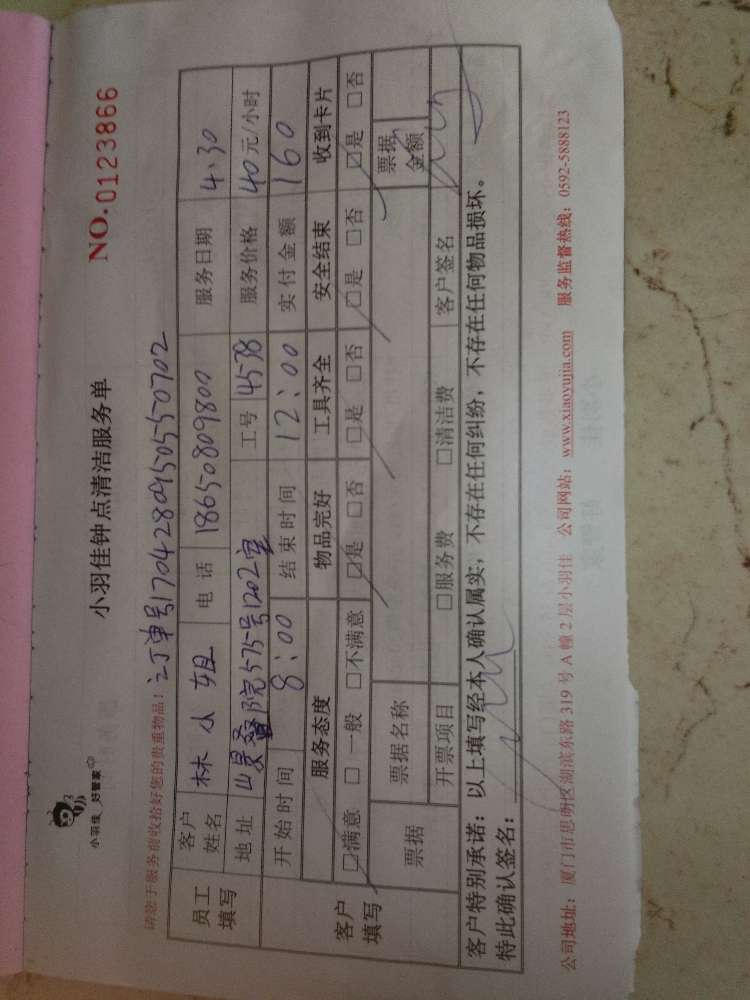 小羽佳 好管家
小羽佳钟点清洁服务单
NO.0123866
请您于服务前收拾好您的贵重物品!
订单号17042809505550702
员工填写 客户姓名 林小姐 电话 18650809800 服务日期 4.30
地址 575号1202室 工号 4578 服务价格 40元/小时
开始时间 8:00 结束时间 12:00 实付金额 160
客户填写 服务态度 物品完好 工具齐全 安全结束 收到卡片
□满意 □一般 □不满意 □是 □否 □是 □否 □是 □否 □是 □否
票据 票据名称 票据金额
开票项目 □服务费 □清洁费 客户签名
客户特别承诺:以上填写经本人确认属实,不存在任何纠纷,不存在任何物品损坏。
特此确认签名:
公司地址:厦门市思明区湖滨东路319号A幢2层小羽佳 公司网站:www.xiaoyujia.com 服务监督热线:0592-5888123